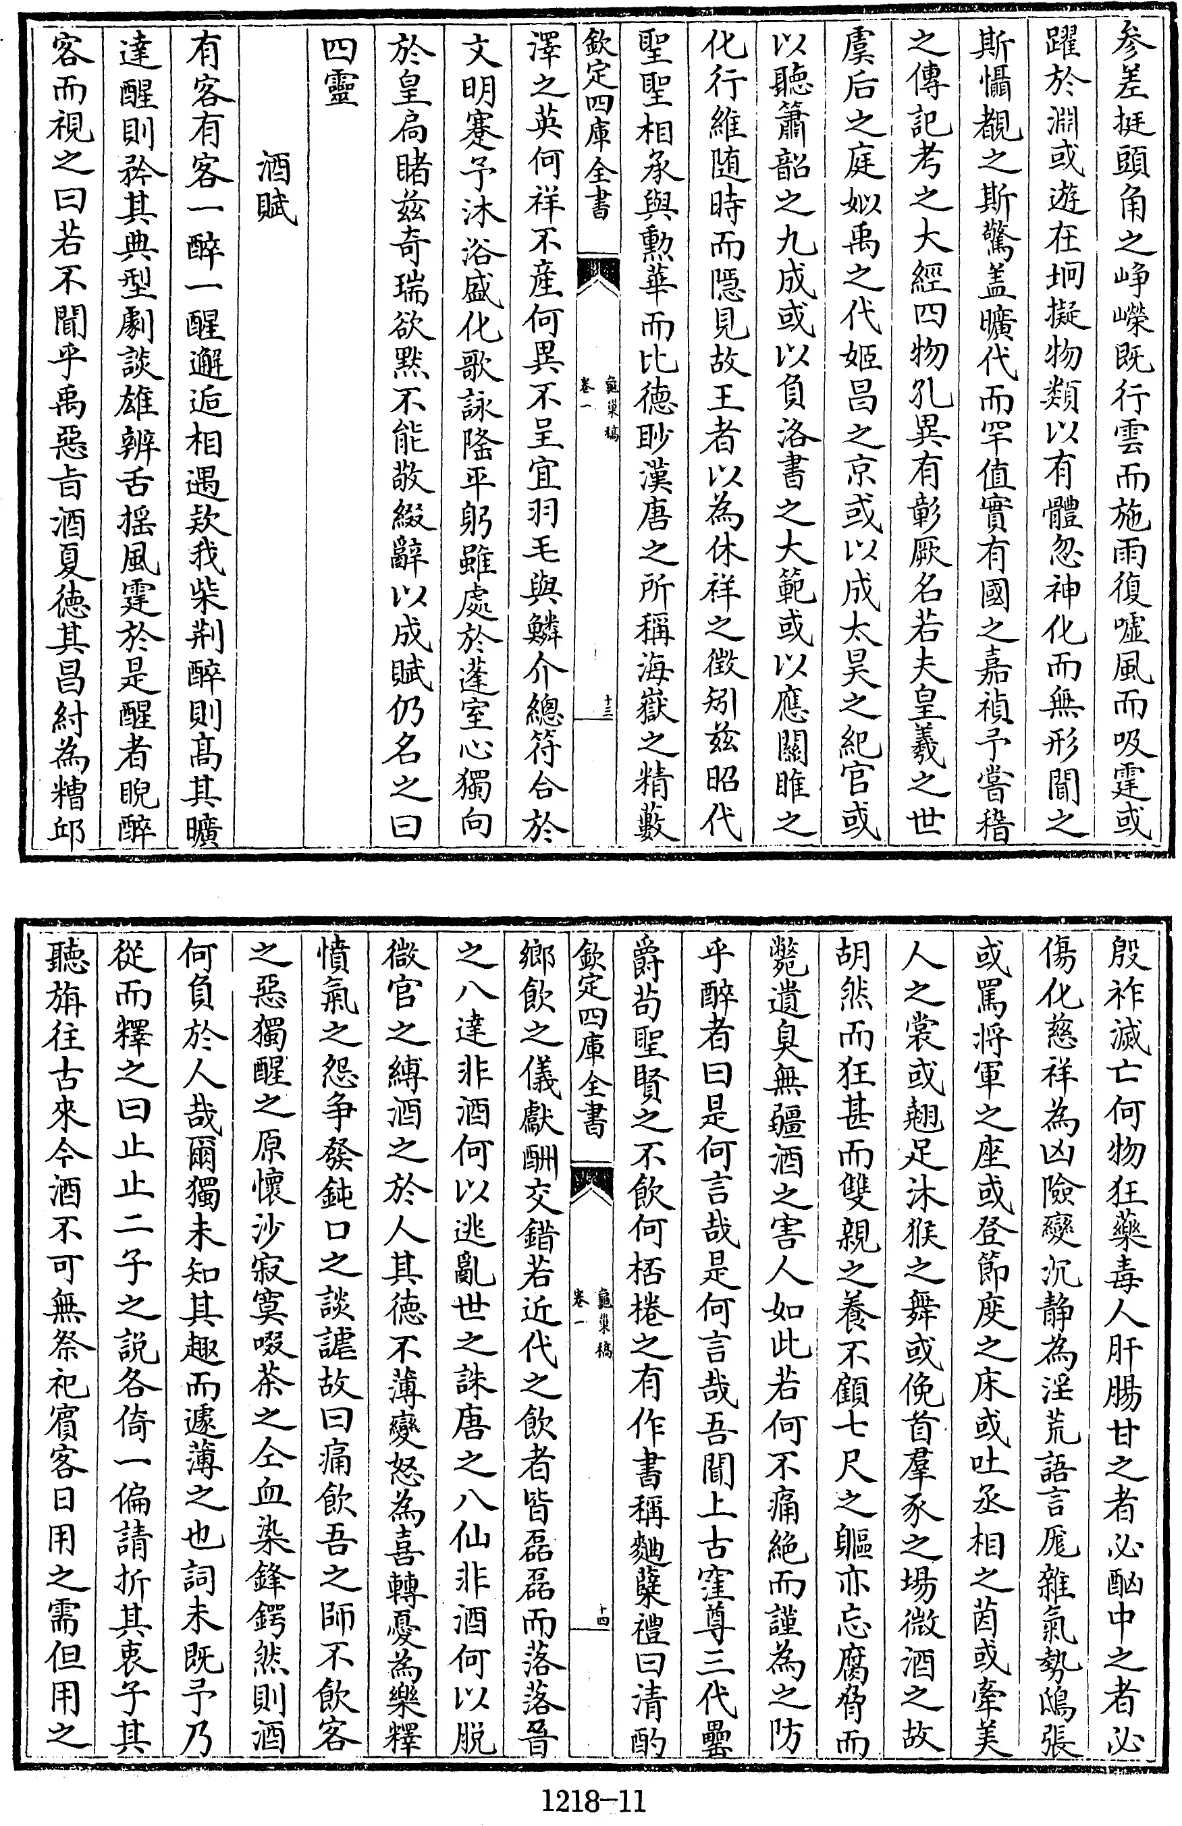 參差挺頭角之崢嶸既行雲而施雨復噓風而吸霆或
躍於淵或遊在坰擬物類以有體忽神化而無形聞之
斯懾覩之斯驚盖曠代而罕值實有國之嘉禎予嘗稽
之傳記考之大經四物孔異有彰厥名若夫皇羲之世
虞后之庭姒禹之代姬昌之京或以成太昊之紀官或
以聽簫韶之九成或以負洛書之大範或以應關雎之
化行維隨時而隱見故王者以為休祥之徵矧兹昭代
聖聖相承與勲華而比德眇漢唐之所稱海嶽之精藪
欽定四庫全書
龜巢稿
卷一
十三
澤之英何祥不產何異不呈宜羽毛與鱗介總符合於
文明蹇予沐浴盛化歌詠隆平躬雖處於蓬室心獨向
於皇扃睹兹奇瑞欲黙不能敬綴辭以成賦仍名之曰
四靈
酒賦
有客有客一醉一醒邂逅相遇欵我柴荆醉則髙其曠
達醒則矜其典型劇談雄辨舌揺風霆於是醒者睨醉
客而視之曰若不聞乎禹惡旨酒夏德其昌紂為糟邱
殷祚滅亡何物狂藥毒人肝腸甘之者必酗中之者必
傷化慈祥為凶險變沉静為淫荒語言厖雜氣勢鴟張
或罵將軍之座或登節度之床或吐丞相之茵或牽美
人之裳或翹足沐猴之舞或俛首羣豕之場微酒之故
胡然而狂甚而雙親之養不顧七尺之軀亦忘腐脅而
斃遺臭無疆酒之害人如此若何不痛絶而謹為之防
乎醉者曰是何言哉是何言哉吾聞上古窪尊三代罍
爵茍聖賢之不飲何桮棬之有作書稱麴糵禮曰清酌
欽定四庫全書
龜巢稿
卷一
十四
鄉飲之儀獻酬交錯若近代之飲者皆磊磊而落落晉
之八達非酒何以逃亂世之誅唐之八仙非酒何以脱
微官之縛酒之於人其德不薄變怒為喜轉憂為樂釋
憤氣之怨争發鈍口之談謔故曰痛飲吾之師不飲客
之惡獨醒之原懷沙寂寞啜茶之仝血染鋒鍔然則酒
何負於人哉爾獨未知其趣而遽薄之也詞未既予乃
從而釋之曰止止二子之説各倚一偏請折其衷子其
聽旃往古來今酒不可無祭祀賓客日用之需但用之
1218-11